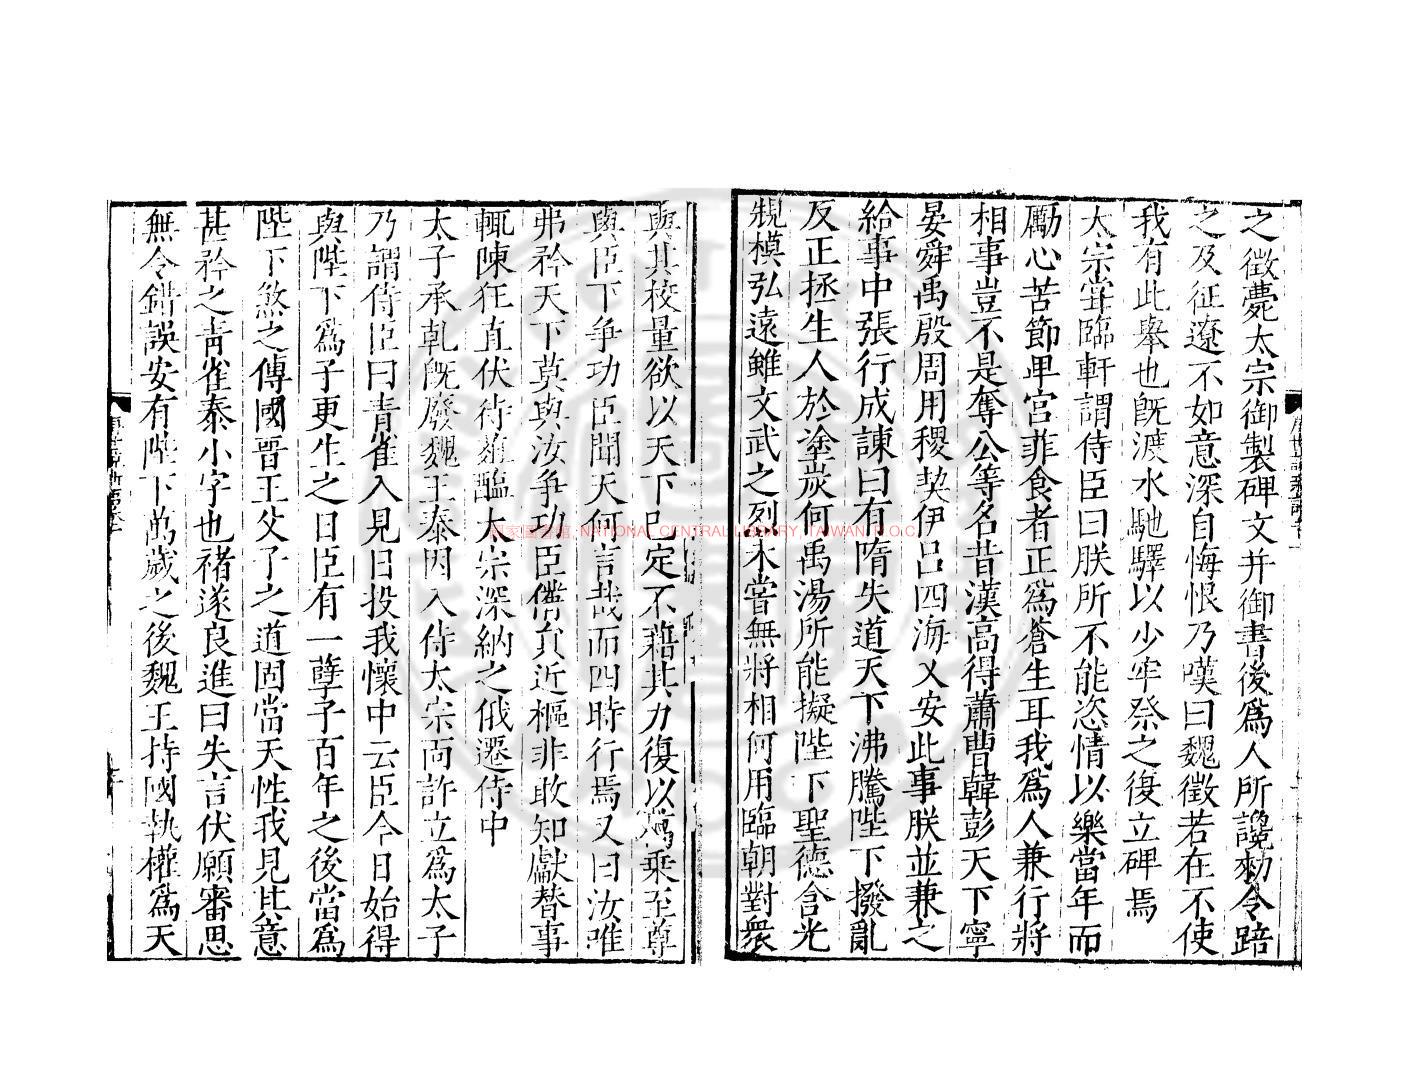 之徵薨太宗御製碑文并御書後爲人所讒勑令踣
之及征遼不如意深自悔恨乃嘆曰魏徵若在不使
我有此舉也旣渡水馳驛以少牢祭之復立碑焉
太宗嘗臨軒謂侍臣曰朕所不能恣情以樂當年而
勵心苦節卑宮菲食者正爲蒼生耳我爲人兼行將
相事豈不是奪公等名昔漢高得蕭曹韓彭天下寧
晏舜禹殷周用稷契伊呂四海乂安此事朕並兼之
給事中張行成諫曰有隋失道天下沸騰陛下撥亂
反正拯生人於塗炭何禹湯所能擬陛下聖德含光
規模弘遠雖文武之烈未嘗無將相何用臨朝對衆
與其校量欲以天下已定不藉其力復以萬乘至尊
與臣下爭功臣聞天何言哉而四時行焉又曰汝唯
弗矜天下莫與汝爭功臣備員近樞非敢知獻替事
輒陳狂直伏待葅醢太宗深納之俄遷侍中
太子承乾旣廢魏王泰因入侍太宗面許立爲太子
乃謂侍臣曰青雀入見日投我懷中云臣今日始得
與陛下爲子更生之日臣有一孽子百年之後當爲
陛下煞之傳國晉王父子之道固當天性我見其意
甚矜之青雀泰小字也褚遂良進曰失言伏願審思
無令錯誤安有陛下萬歲之後魏王持國執權爲天
國家圖書館, NATIONAL CENTRAL LIBRARY, TAIWAN, R.O.C.